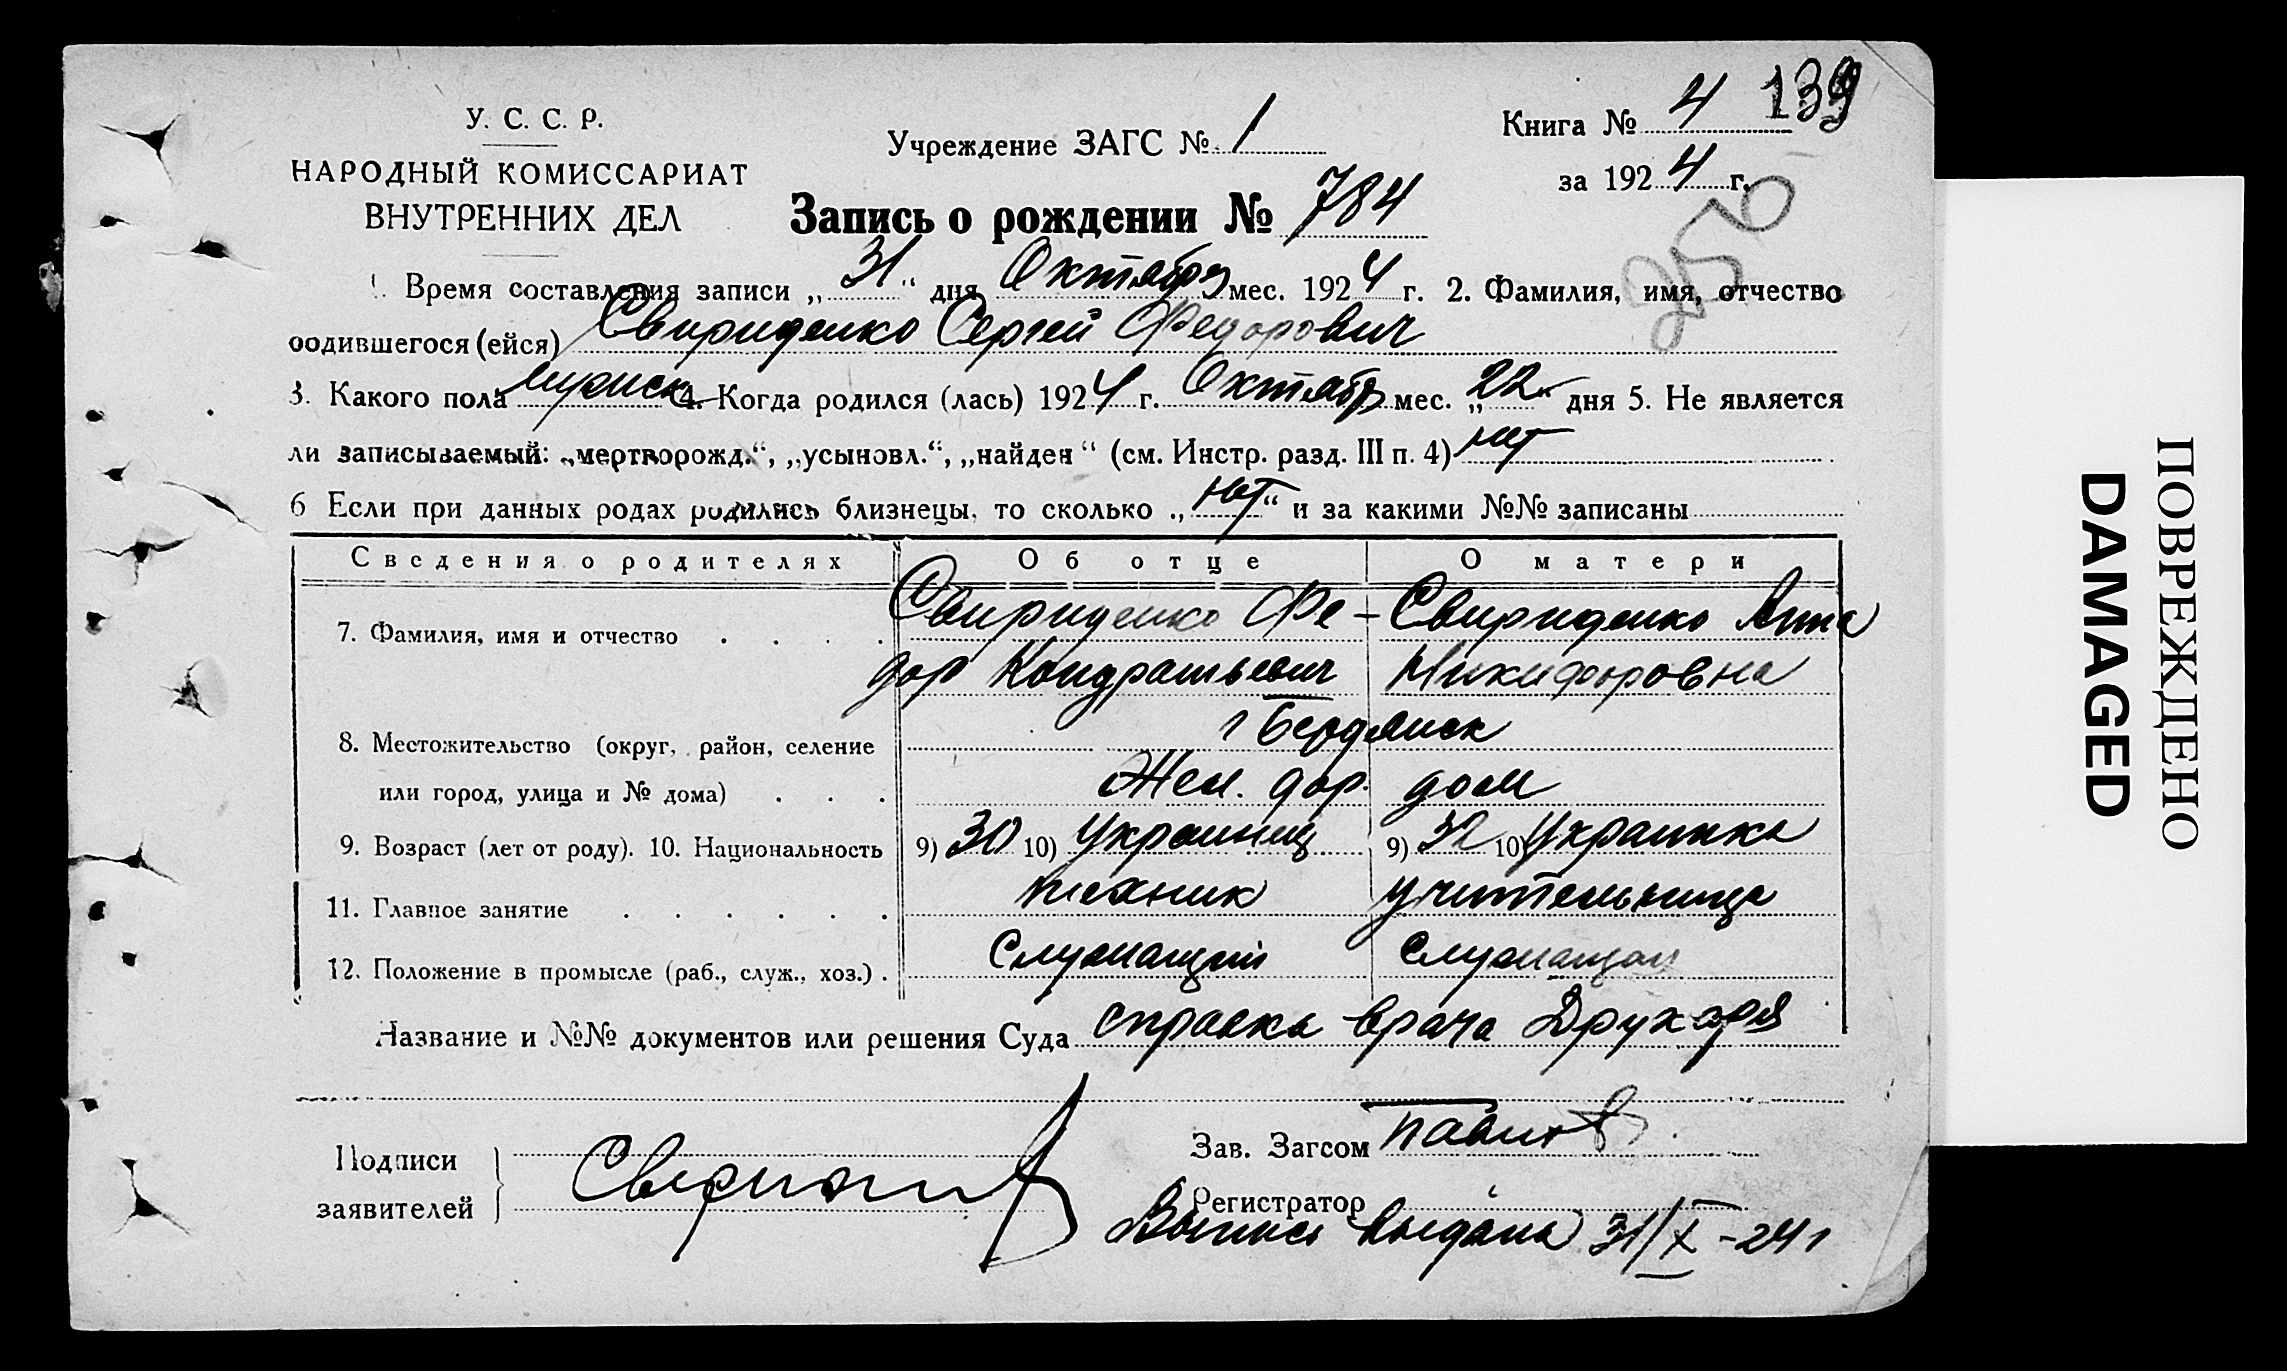 139
У. С. С. Р.
НАРОДНЫЙ КОМИССАРИАТ
ВНУТРЕННИХ ДЕЛ
Учреждение ЗАГС № 1
Книга № 4
за 1924 г.
250
Запись о рождении № 784
1. Время составления записи „31“ дня Октября мес. 1924 г. 2. Фамилия, имя, отчество
родившегося (ейся) Свириденко Сергей Федорович
3. Какого пола мужск 4. Когда родился (лась) 1924 г. Октября мес. „22“ дня 5. Не является
ли записываемый: „мертворожд.“, „усыновл.“, „найден“ (см. Инстр. разд. III п. 4) нет
6 Если при данных родах родились близнецы, то сколько „нет“ и за какими №№ записаны
Сведения о родителях Об отце О матери
7. Фамилия, имя и отчество Свириденко Фе- Свириденко Анна
дор Кондратьевич Никифоровна
8. Местожительство (округ, район, селение г Бердянск
или город, улица и № дома) Жел. дор. дом
9. Возраст (лет от роду). 10. Национальность 9) 30 10) Украинец 9) 32 10) Украинка
11. Главное занятие техник учительница
12. Положение в промысле (раб., служ., хоз.) служащий служащая
Название и №№ документов или решения Суда справка врача Друхаря
Подписи
заявителей
Зав. Загсом
Регистратор
Выпись выдана 31/X-24 г
ПОВРЕЖДЕНО
DAMAGED